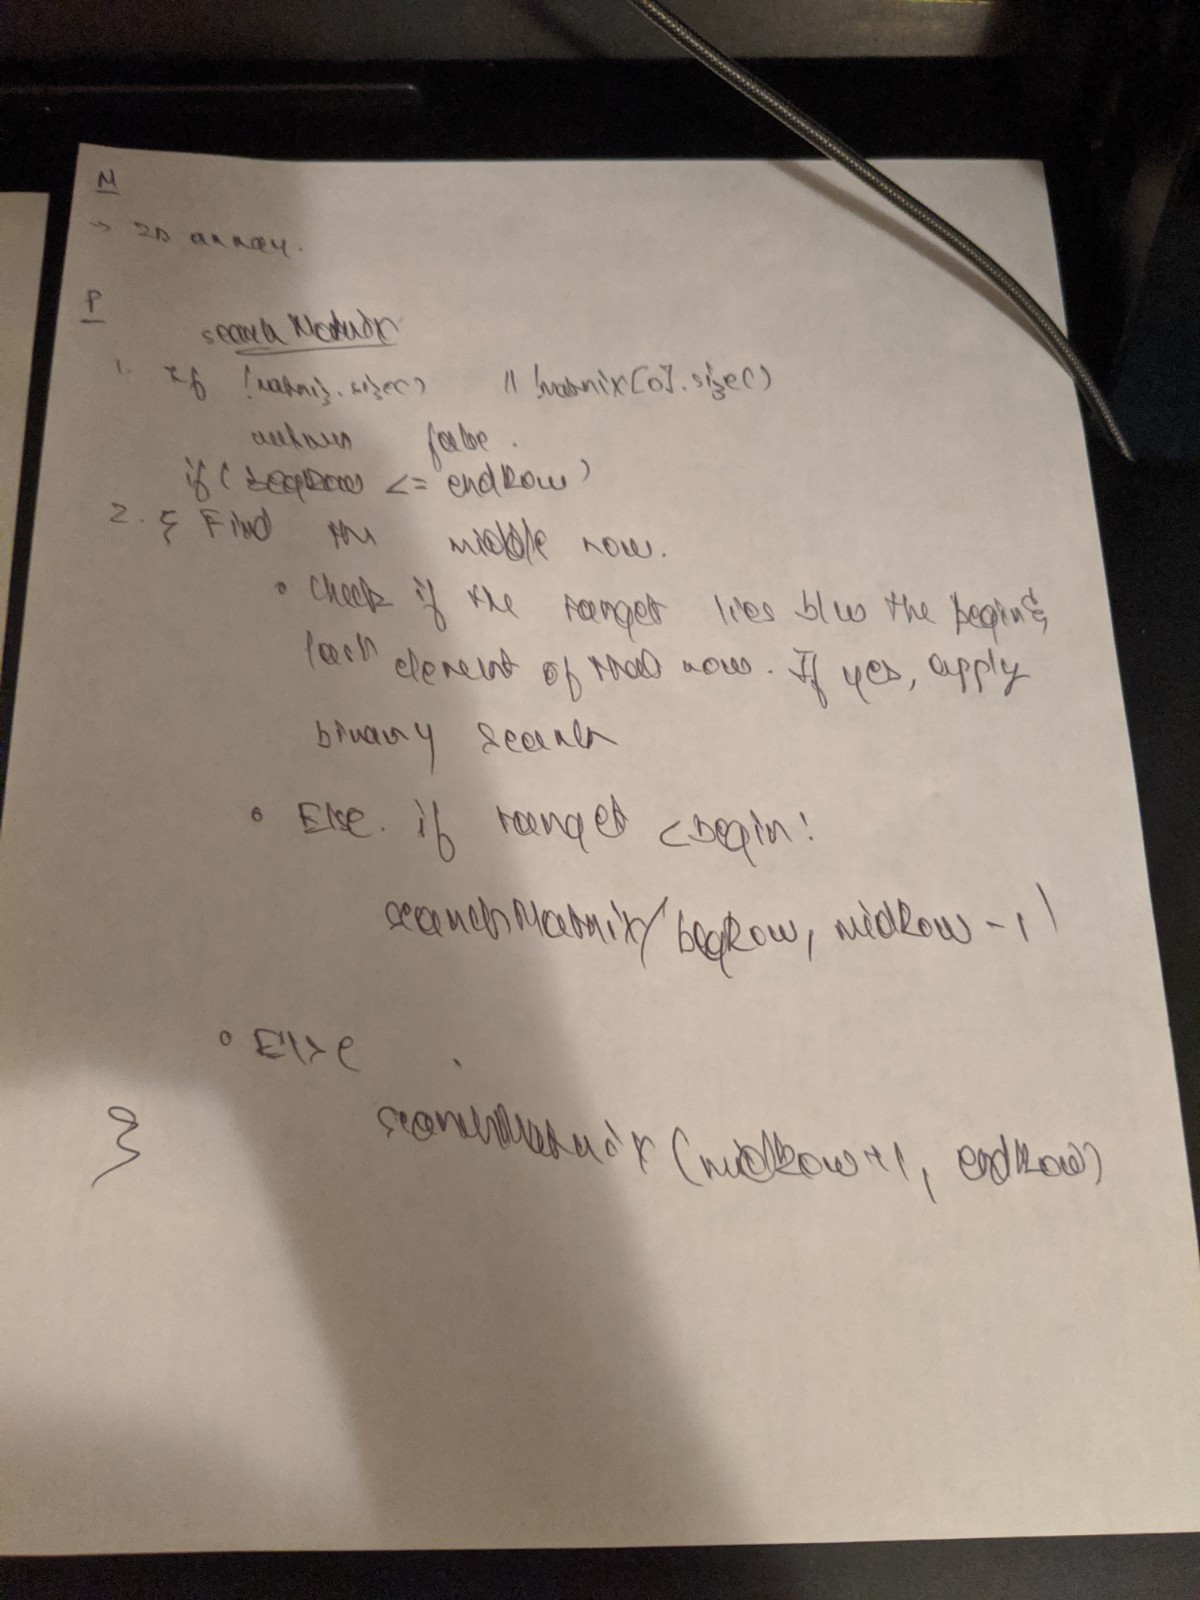 M
→ 2D array.
P
searchMatrix
1. If !matrix.size() || !matrix[0].size()
return false.
if (begRow <= endRow)
2. { Find the middle row.
• Check if the target lies b/w the begin &
last element of that row. If yes, apply
binary search
• Else. if target < begin:
searchMatrix(begRow, midRow-1)
• Else
searchMatrix(midRow+1, endRow)
}